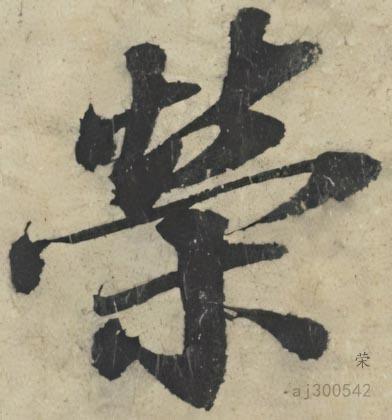 榮
荣
aj300542